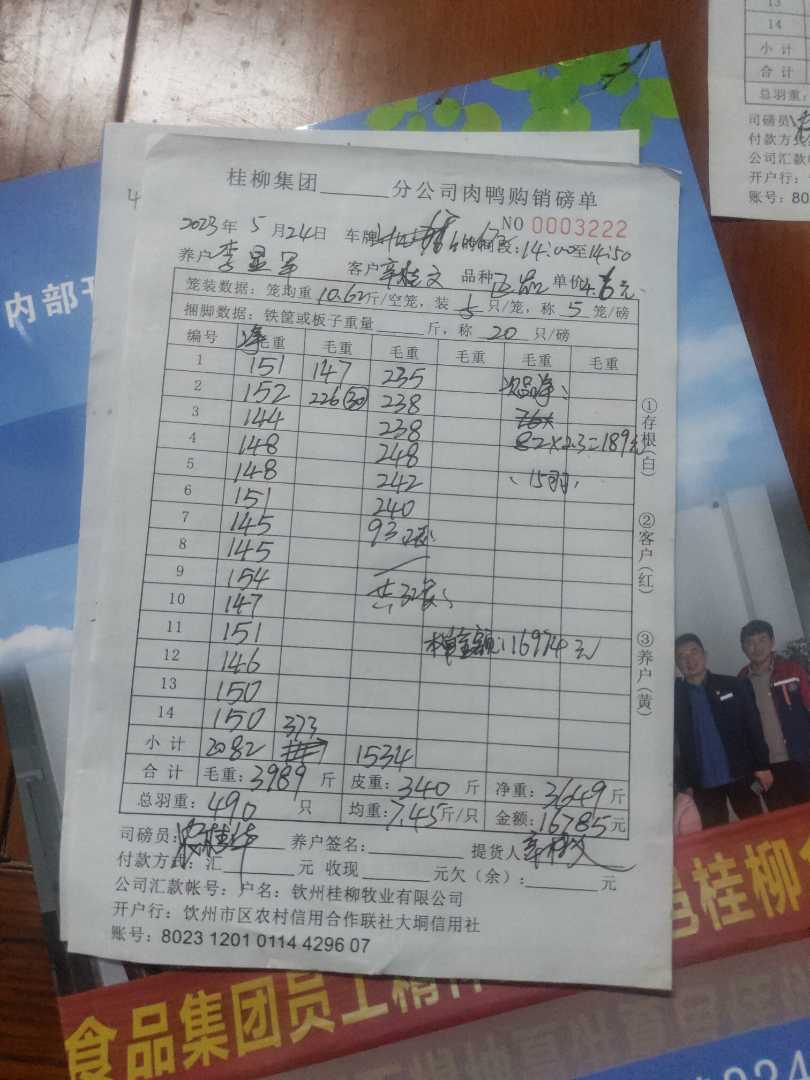 13
14
小计
合计
总羽重:
司磅员
付款方式
公司汇款
开户行:
账号: 80
4
内部
桂柳集团 分公司肉鸭购销磅单
NO 0003222
2023年 5 月24日 车牌 时间段:14:00至14:50
养户 李显军 客户 辛桂文 品种 正品 单价4.6元
笼装数据: 笼均重 10.62斤/空笼, 装 5 只/笼, 称 5 笼/磅
捆脚数据: 铁筐或板子重量 斤, 称 20 只/磅
编号 净毛重 毛重 毛重 毛重 毛重 毛重
1 151 147 235
2 152 226(30) 238 次品净:
3 144 238 76x
4 148 248 82×2.3=189元
5 148 242 15羽
6 151 240
7 145 93
8 145
9 154 共32笼
10 147
11 151 本单金额:16974元
12 146
13 150
14 150 373
小计 2082 1534
合计 毛重:3989 斤 皮重:340 斤 净重:3649斤
总羽重:490 只 均重:7.45斤/只 金额:16785元
司磅员: 养户签名: 提货人 辛桂文
付款方式: 汇 元 收现 元欠(余): 元
公司汇款帐号: 户名: 钦州桂柳牧业有限公司
开户行: 钦州市区农村信用合作联社大垌信用社
账号: 8023 1201 0114 4296 07
①存根(白)
②客户(红)
③养户(黄)
邕桂柳
食品集团员工精